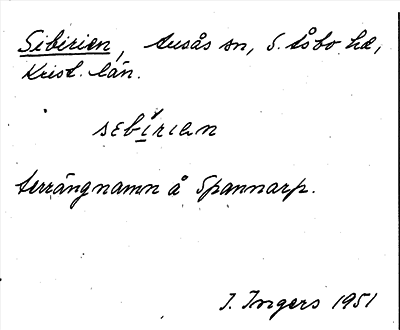 Sibirien, Ausås sn, S. Åsbo hd,
Krist. län.
sɛbírian
terrängnamn å Spannarp.
I. Ingers 1951